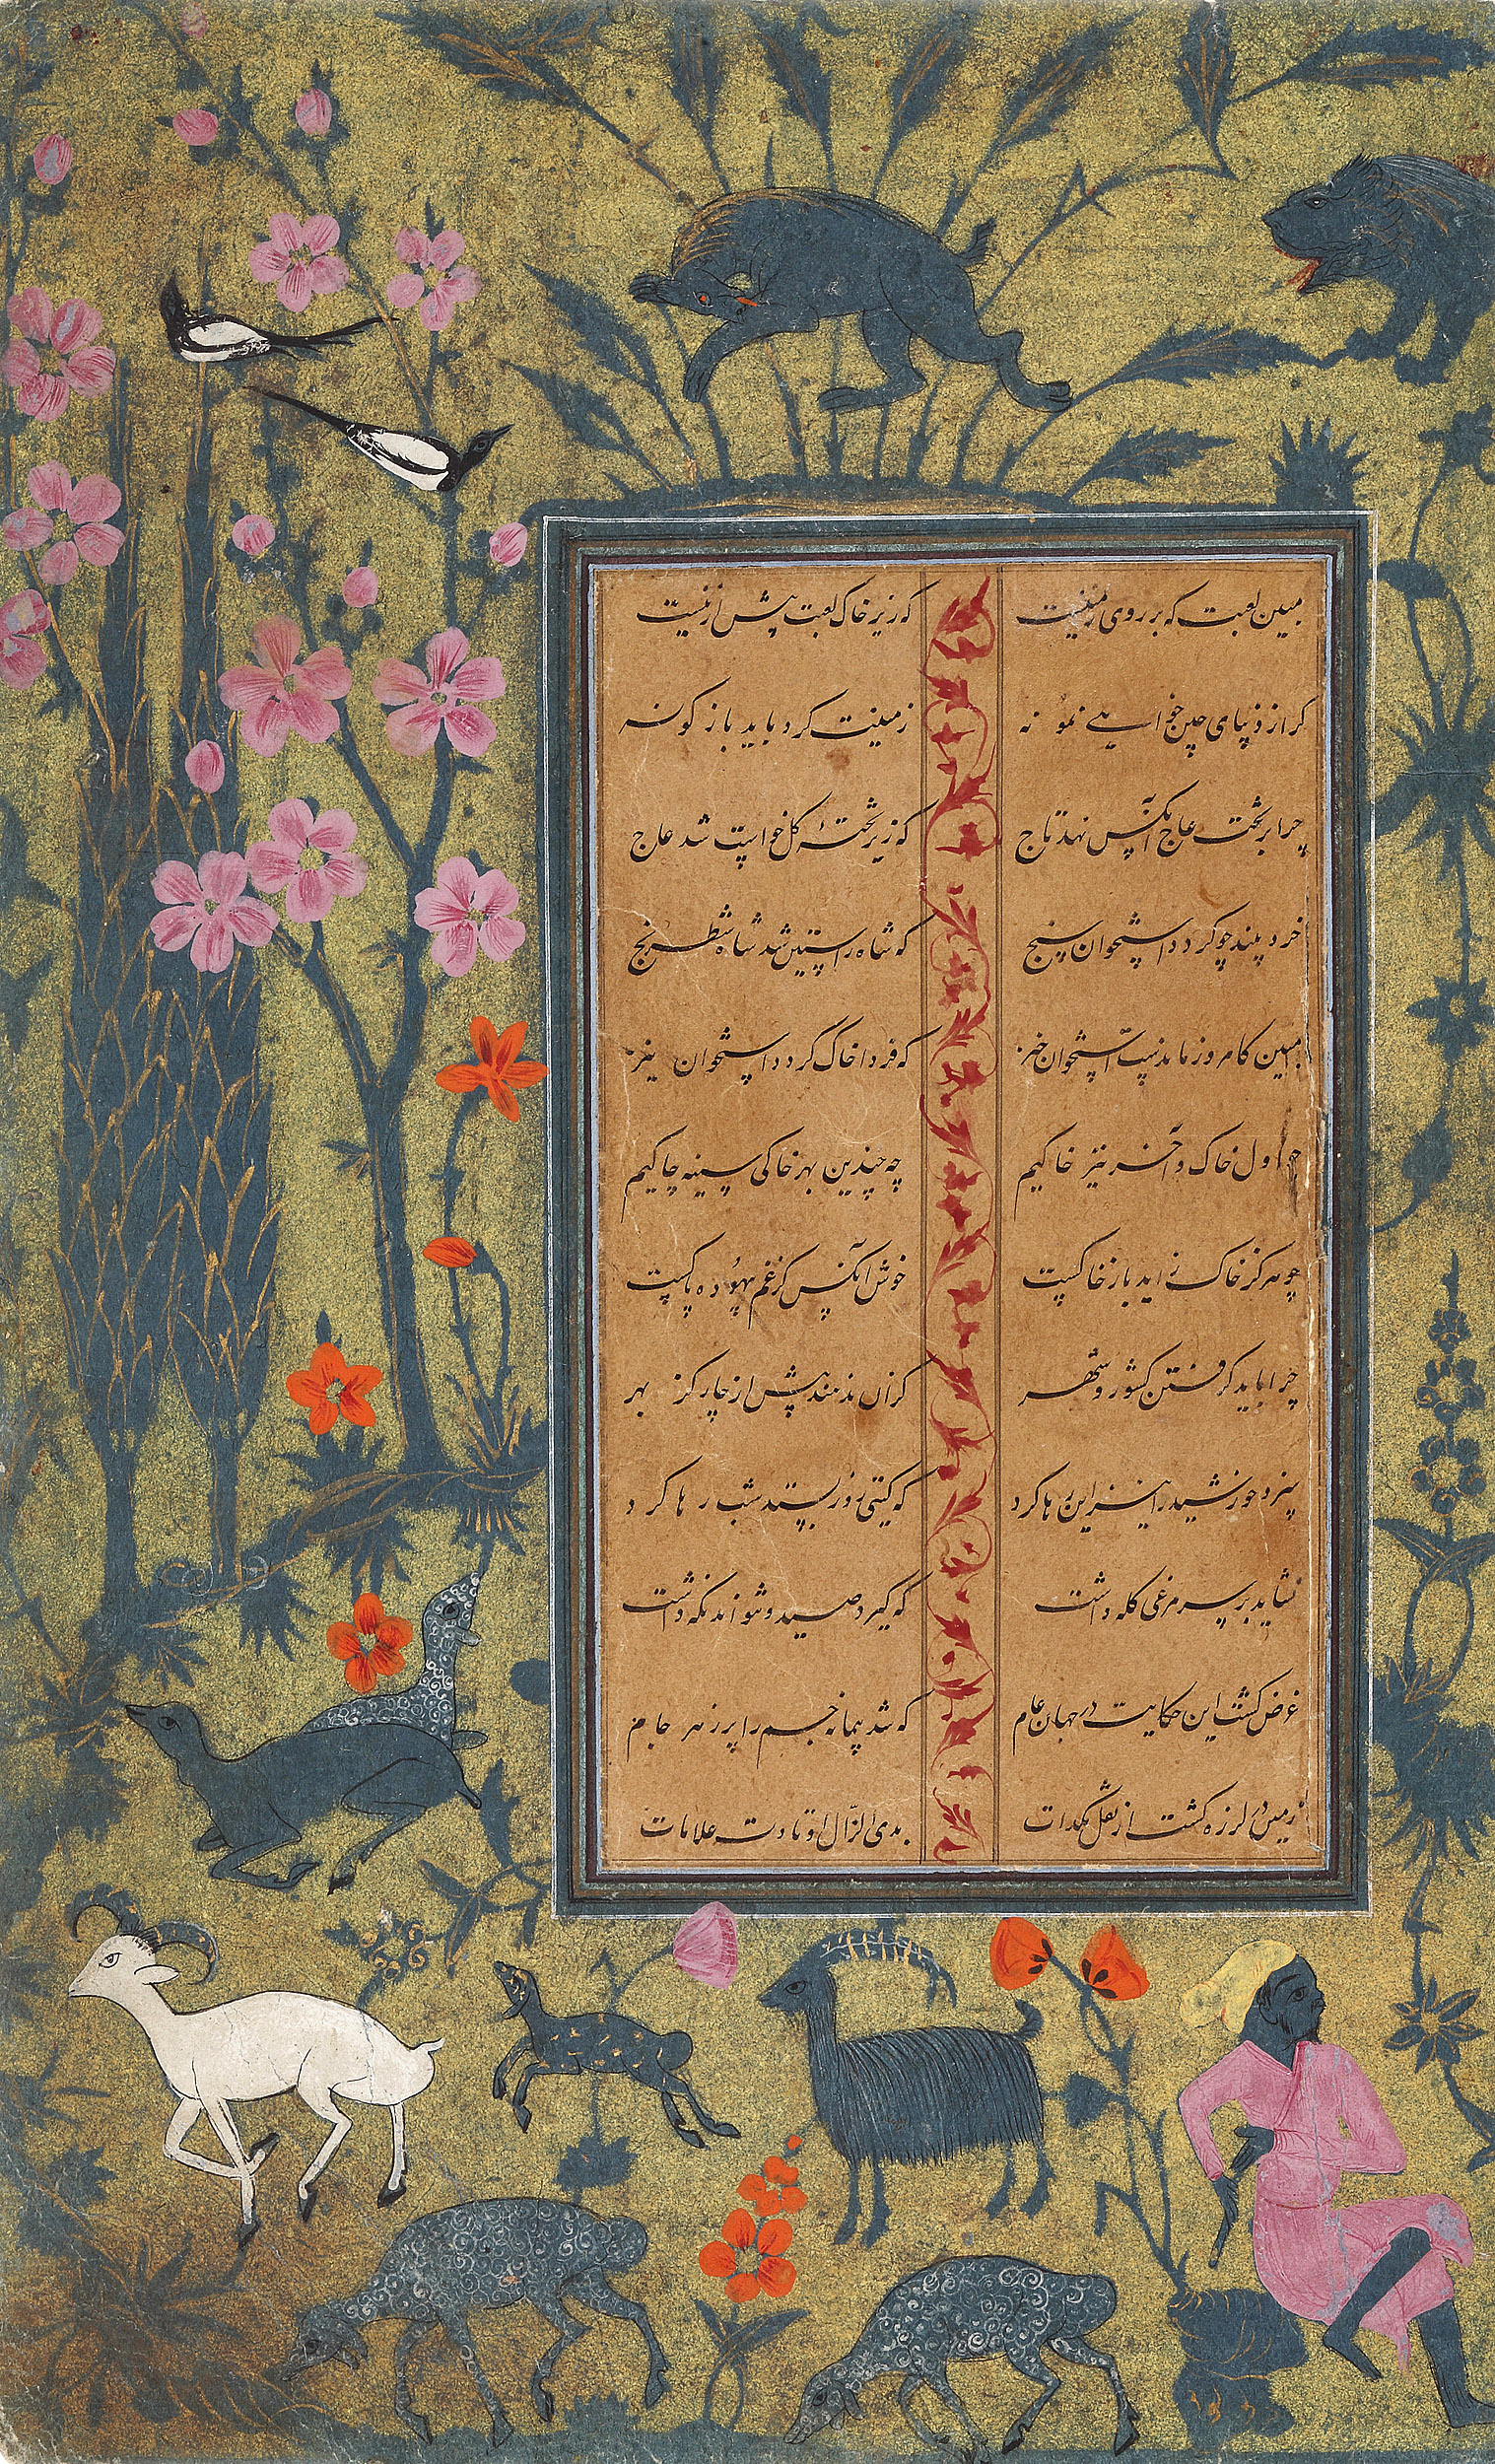 مبین لعبت که بر روی زمینست که زیر خاک لعبت پیش ازینست
گر از دیبای چین خواهی نمونه زمینت کرد باید باز گونه
چرا بر تخت عاج آنکس نهد تاج که زیر تختهٔ گل خواست شد عاج
خرد بیند چو گردد استخوان سنج که شاه راستین شد شاه شطرنج
مبین کامروز ماندست استخوان خیز که فردا خاک گردد استخوان نیز
چو اول خاک و آخر نیز خاکیم چه چندین بهر خاکی سینه چاکیم
چو هر کز خاک زاید باز خاکست خوش آنکس کز غم بیهوده پاکست
چرا باید گرفتن کشور و شهر کزان ندهند بیش از چار گز بهر
که گیتی روز بستد شب رها کرد
نشاید بر سر مرغی کله داشت که گیرد صید و نتواند نگه داشت
غرض گشت این حکایت در جهان عام که شد پیمانه جم را پر ز هر جام
زمین در لرزه گشت از نقل